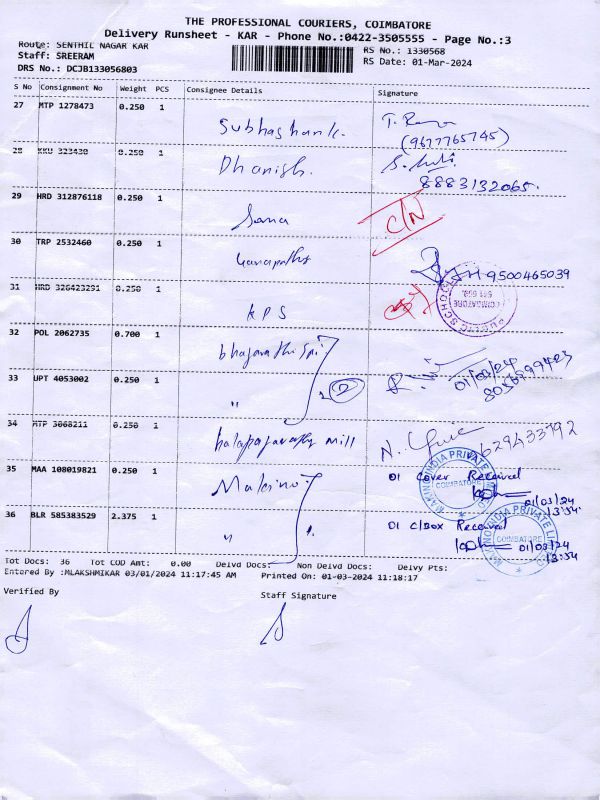 THE PROFESSIONAL COURIERS, COIMBATORE
Delivery Runsheet - KAR - Phone No.:0422-3505555 - Page No.:3
Route: SENTHIL NAGAR KAR
RS No.: 1330568
Staff: SREERAM
RS Date: 01-Mar-2024
DRS No.: DCJB133056803
S No Consignment No Weight PCS Consignee Details Signature
27 MTP 1278473 0.250 1
Subhashank.
(9677765745)
28 KKU 323430 0.250 1
Dhanish.
8883132065.
29 HRD 312876118 0.250 1
Sana
C/N
30 TRP 2532460 0.250 1
9500465039
31 HRD 326423291 0.250 1
KPS
PUBLIC SCHOOL
COIMBATORE
32 POL 2062735 0.700 1
01/03/24
33 UPT 4053002 0.250 1
"
2
34 MTP 3068211 0.250 1
mill
35 MAA 108019821 0.250 1
Makino
01 Cover Received
01/03/24
13:54
MAKINO INDIA PRIVATE LIMITED
COIMBATORE
36 BLR 585383529 2.375 1
"
01 C/Box Received
01/03/24
13:54
MAKINO INDIA PRIVATE LIMITED
COIMBATORE
Tot Docs: 36 Tot COD Amt: 0.00 Deivd Docs: Non Deivd Docs: Deivy Pts:
Entered By :MLAKSHMIKAR 03/01/2024 11:17:45 AM Printed On: 01-03-2024 11:18:17
Verified By
Staff Signature